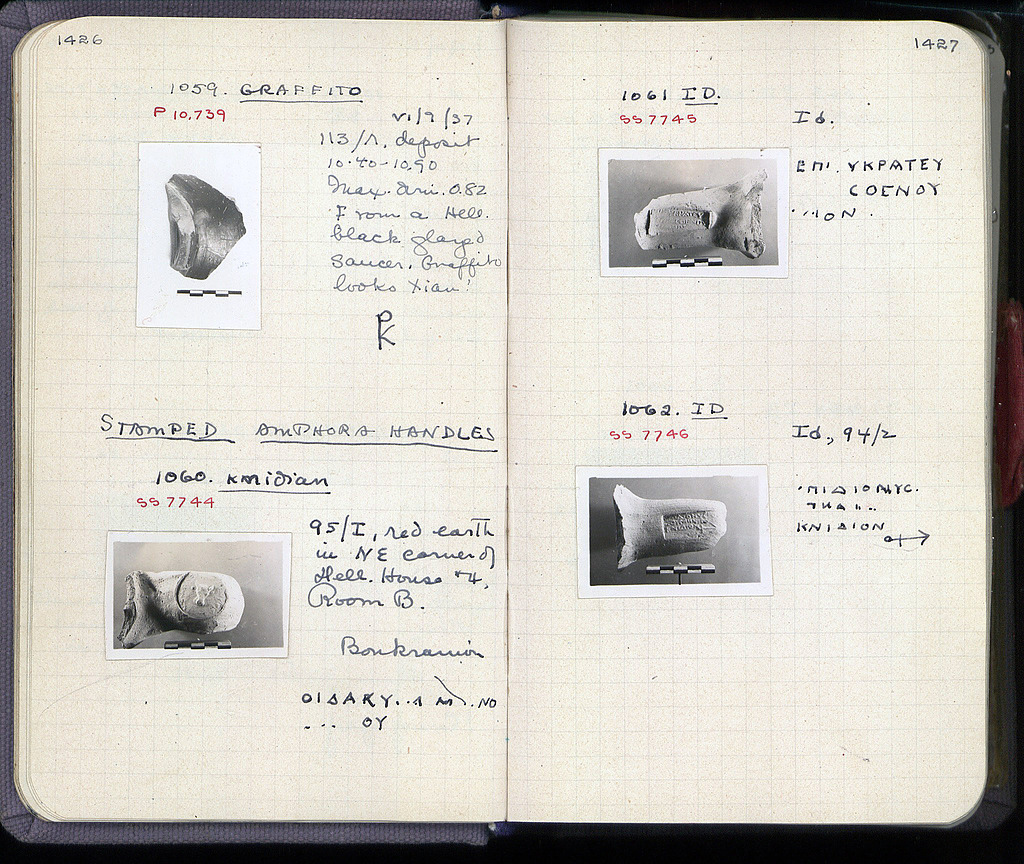 1426
1059. GRAFFITO
P 10,739
VI/9/37
113/Λ, deposit
10.40-10.90
Max. dim. 0.82
From a Hell.
black glazed
saucer. Graffito
looks Xian!
STAMPED AMPHORA HANDLES
1060. Knidian
SS 7744
95/I, red earth
in NE corner of
Hell. House 4,
Room B.
Boukranion
ΟΙΔΑΚΥ
ΟΥ
1427
1061 ID.
SS 7745
Id.
ΕΠΙ ΥΚΡΑΤΕΥ
ΣΘΕΝΟΥ
ΙΟΝ.
1062. ID
SS 7746
Id., 94/2
ΠΙΔΙΟΝΥC.
ΚΝΙΔΙΟΝ